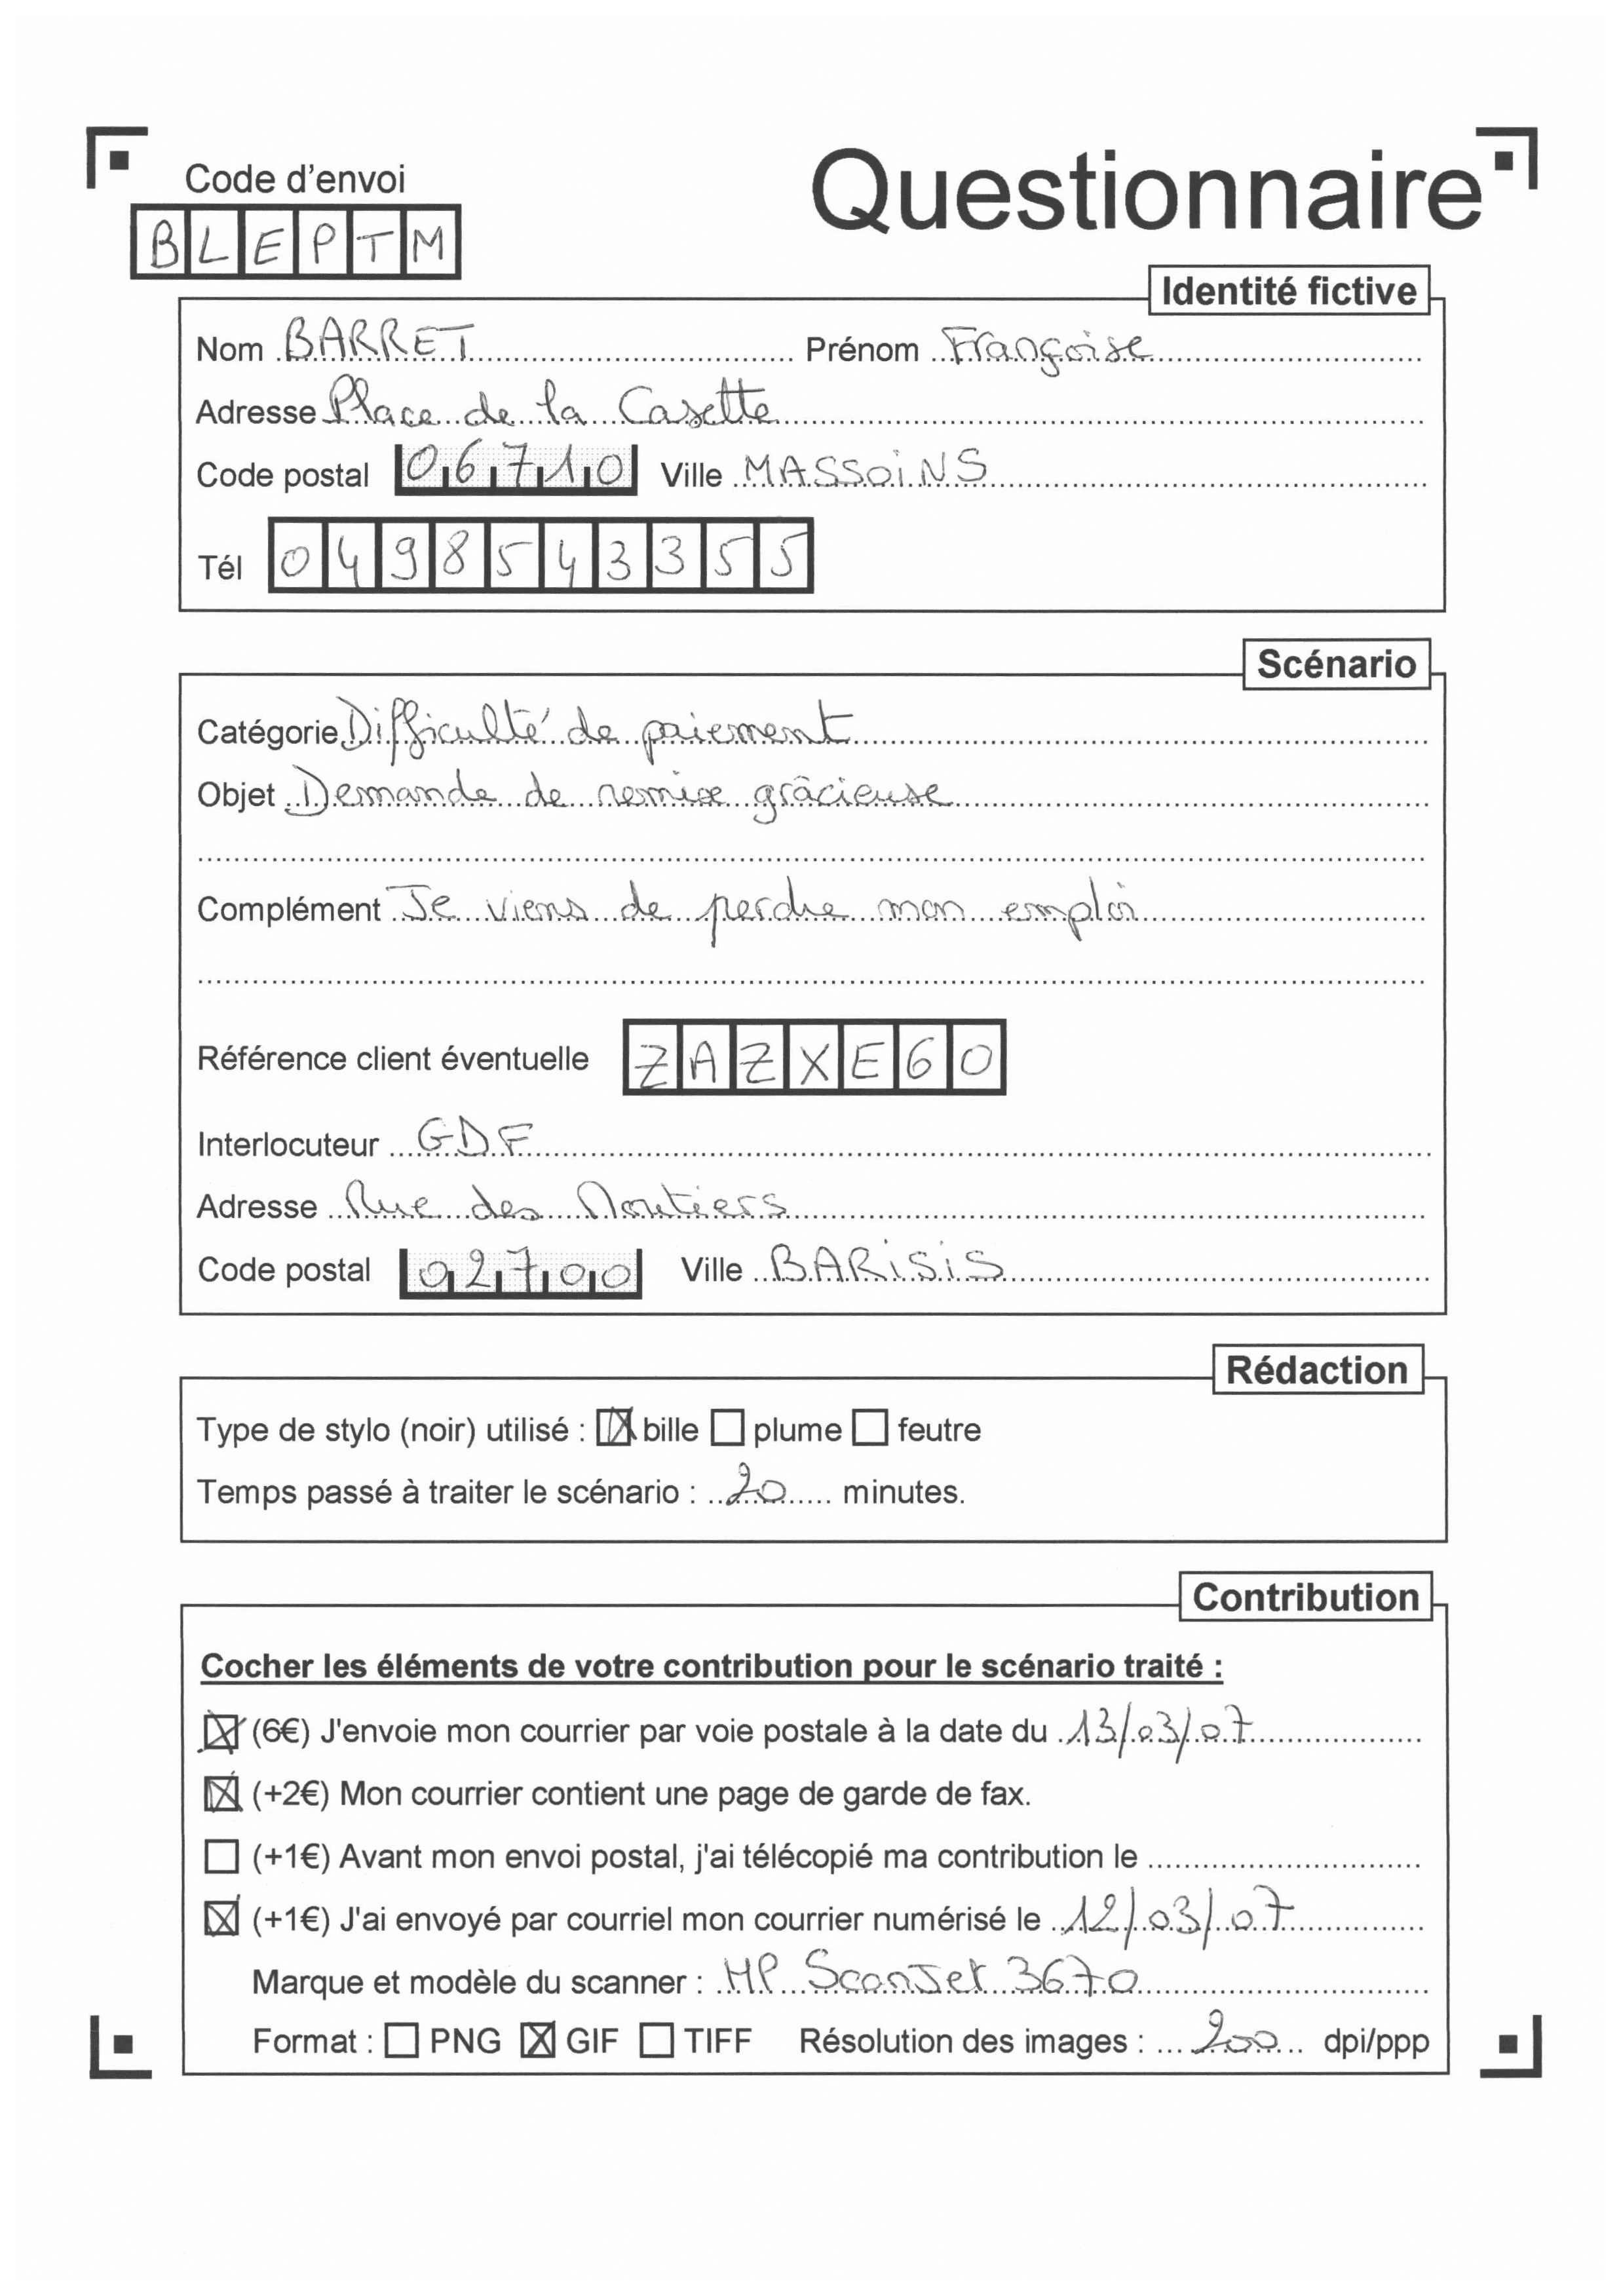 Code d'envoi
Questionnaire
BLEPTM
Identité fictive
Nom BARRET Prénom Françoise
Adresse Place de la Casette
Code postal 06710 Ville MASSOiNS
Tél 0498543355
Scénario
Catégorie Difficulté de paiement
Objet Demande de remise grâcieuse
Complément Je viens de perdre mon emploi
Référence client éventuelle ZAZXE60
Interlocuteur GDF
Adresse Rue des Moutiers
Code postal 02700 Ville BARiSiS
Rédaction
Type de stylo (noir) utilisé : ☒ bille ☐ plume ☐ feutre
Temps passé à traiter le scénario : 20 minutes.
Contribution
Cocher les éléments de votre contribution pour le scénario traité :
☒ (6€) J'envoie mon courrier par voie postale à la date du 13/03/07
☒ (+2€) Mon courrier contient une page de garde de fax.
☐ (+1€) Avant mon envoi postal, j'ai télécopié ma contribution le
☒ (+1€) J'ai envoyé par courriel mon courrier numérisé le 12/03/07
Marque et modèle du scanner : HP ScanJet 3670
Format : ☐ PNG ☒ GIF ☐ TIFF Résolution des images : 200 dpi/ppp